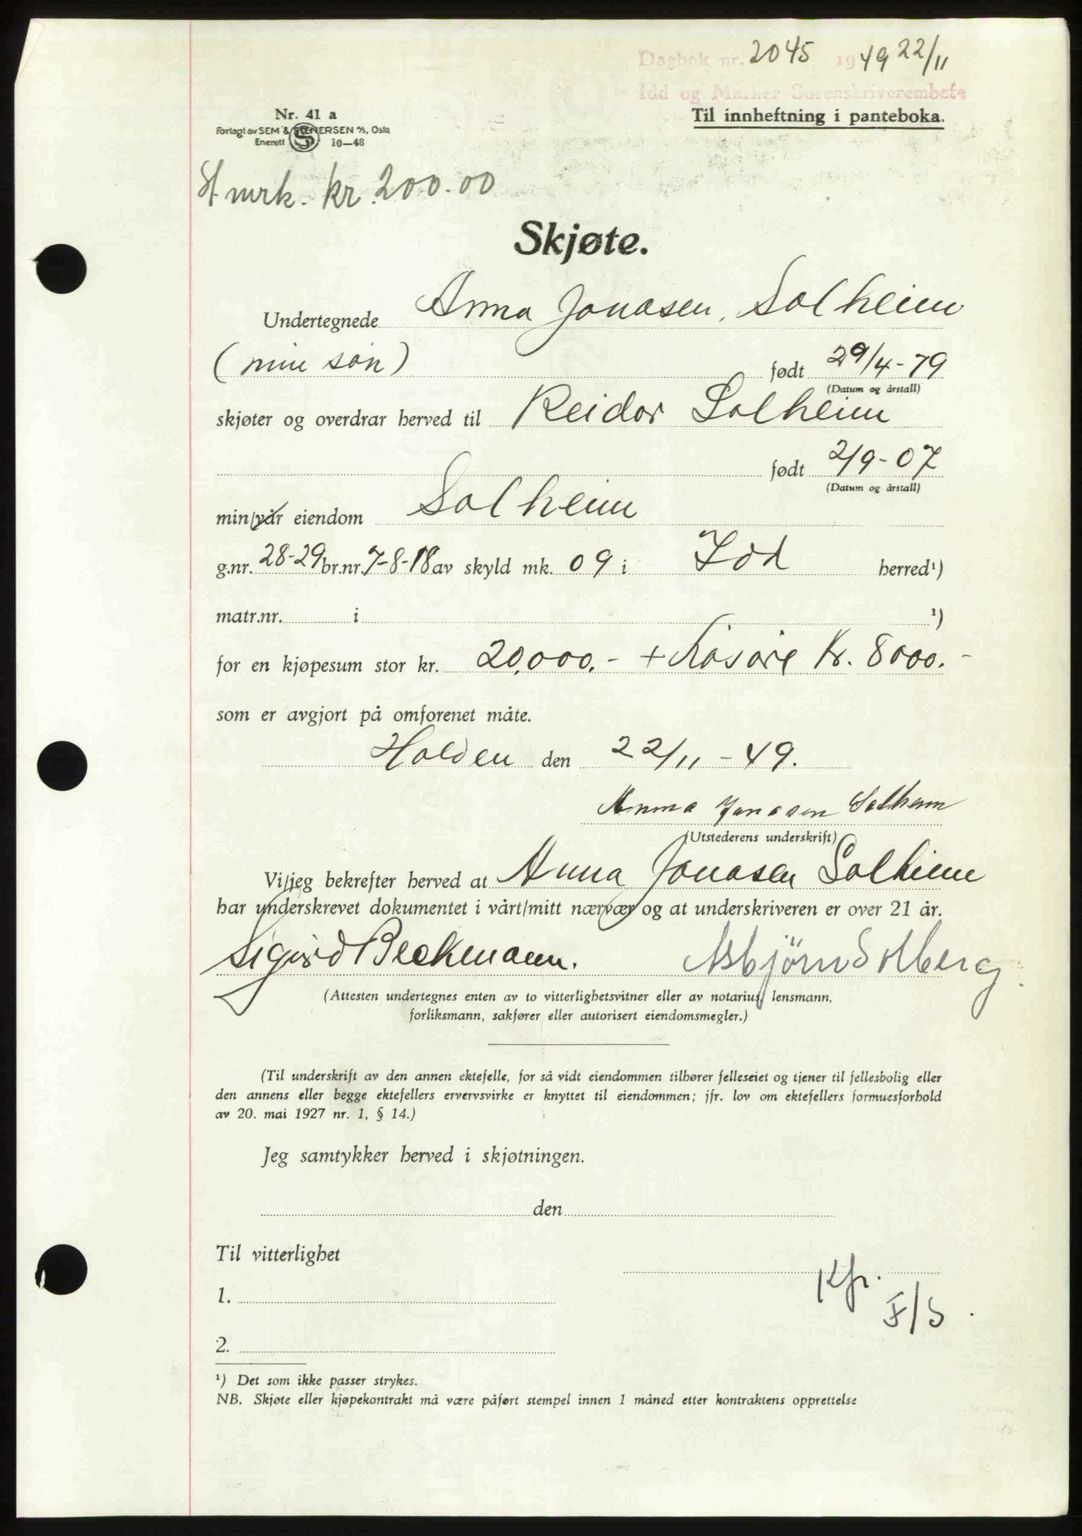 Dagbok nr. 2045 1949 22/11
Idd og Marker Sorenskriverembete
Til innheftning i panteboka.
Nr. 41 a
Forlagt av SEM & STENERSEN A/S, Oslo
Enerett S 10—48
St mrk. kr. 200.00
Skjøte.
Undertegnede Anna Jonasen, Solheim
(min søn) født 29/4-79
(Datum og årstall)
skjøter og overdrar herved til Reidar Solheim
født 2/9-07
(Datum og årstall)
min/vår eiendom Solheim
g.nr. 28-29 br.nr. 7-8-18 av skyld mk. 09 i Idd herred¹)
matr.nr. i ¹)
for en kjøpesum stor kr. 20,000.- + Løsøre Kr. 8000.-
som er avgjort på omforenet måte.
Halden den 22/11 - 49.
Anna Jonasen Solheim
(Utstederens underskrift)
Vi/jeg bekrefter herved at Anna Jonasen Solheim
har underskrevet dokumentet i vårt/mitt nærvær og at underskriveren er over 21 år.
Sigurd Beckmann. Asbjørn Solberg.
(Attesten undertegnes enten av to vitterlighetsvitner eller av notarius, lensmann,
forliksmann, sakfører eller autorisert eiendomsmegler.)
(Til underskrift av den annen ektefelle, for så vidt eiendommen tilhører felleseiet og tjener til fellesbolig eller
den annens eller begge ektefellers ervervsvirke er knyttet til eiendommen; jfr. lov om ektefellers formuesforhold
av 20. mai 1927 nr. 1, § 14.)
Jeg samtykker herved i skjøtningen.
den
Til vitterlighet
Kfr.
1.
F/S.
2.
¹) Det som ikke passer strykes.
NB. Skjøte eller kjøpekontrakt må være påført stempel innen 1 måned etter kontraktens opprettelse